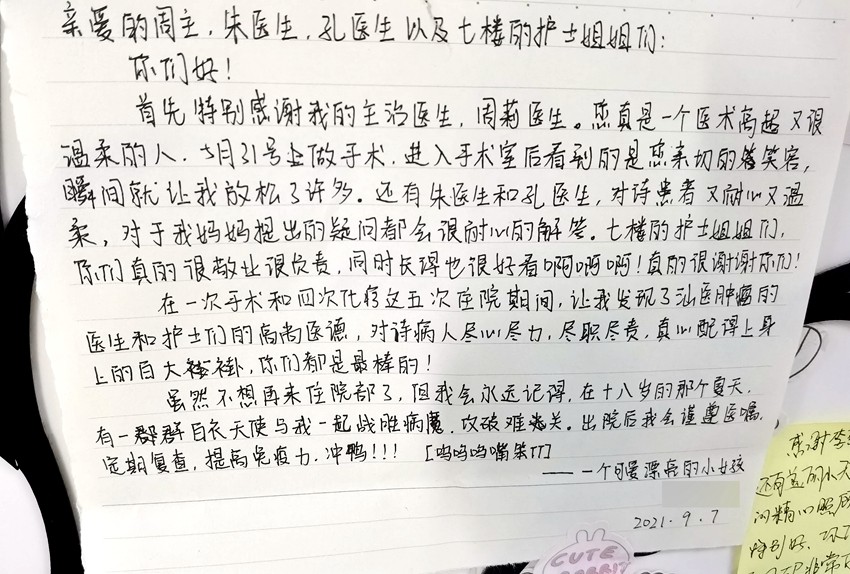 亲爱的周主，朱医生，孔医生以及七楼的护士姐姐们：
你们好！
首先特别感谢我的主治医生，周莉医生。您真是一个医术高超又很
温柔的人，5月31号上做手术，进入手术室后看到的是您亲切的笑容，
瞬间就让我放松了许多。还有朱医生和孔医生，对待患者又耐心又温
柔，对于我妈妈提出的疑问都会很耐心的解答。七楼的护士姐姐们，
你们真的很敬业很负责，同时长得也很好看啊啊啊！真的很谢谢你们！
在一次手术和四次化疗这五次住院期间，让我发现了汕医肿瘤的
医生和护士们的高尚医德，对待病人尽心尽力，尽职尽责，真心配得上身
上的白大褂，你们都是最棒的！
虽然不想再来住院部了，但我会永远记得，在十八岁的那个夏天，
有一群白衣天使与我一起战胜病魔，攻破难关。出院后我会谨遵医嘱，
定期复查，提高免疫力，冲鸭!!! [呜呜呜嘴笨TT]
——一个可爱漂亮的小女孩
2021.9.7
CUTE
RABBIT
感谢李
还有美丽小天
的精心照顾
特别好，